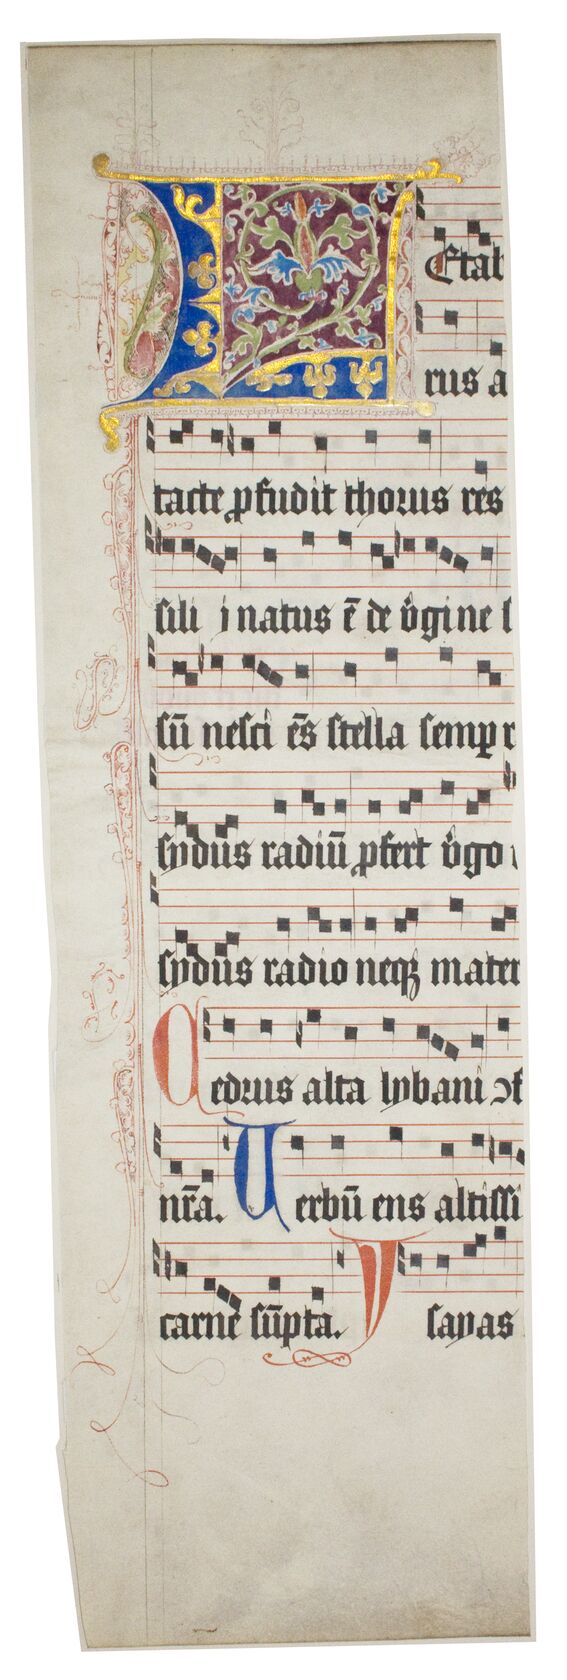 L Etab
rus a
tacte ꝓfudit thorus res
sili j natus ē de v̊gine s
sū nesci ēs stella semꝑ r
sydus radiū ꝓfert v̊go
sydus radio neqꝫ mater
Cedrus alta lybani ɔf
nr̄a. Uerbū ens altissi
carne sūpta. Ysayas